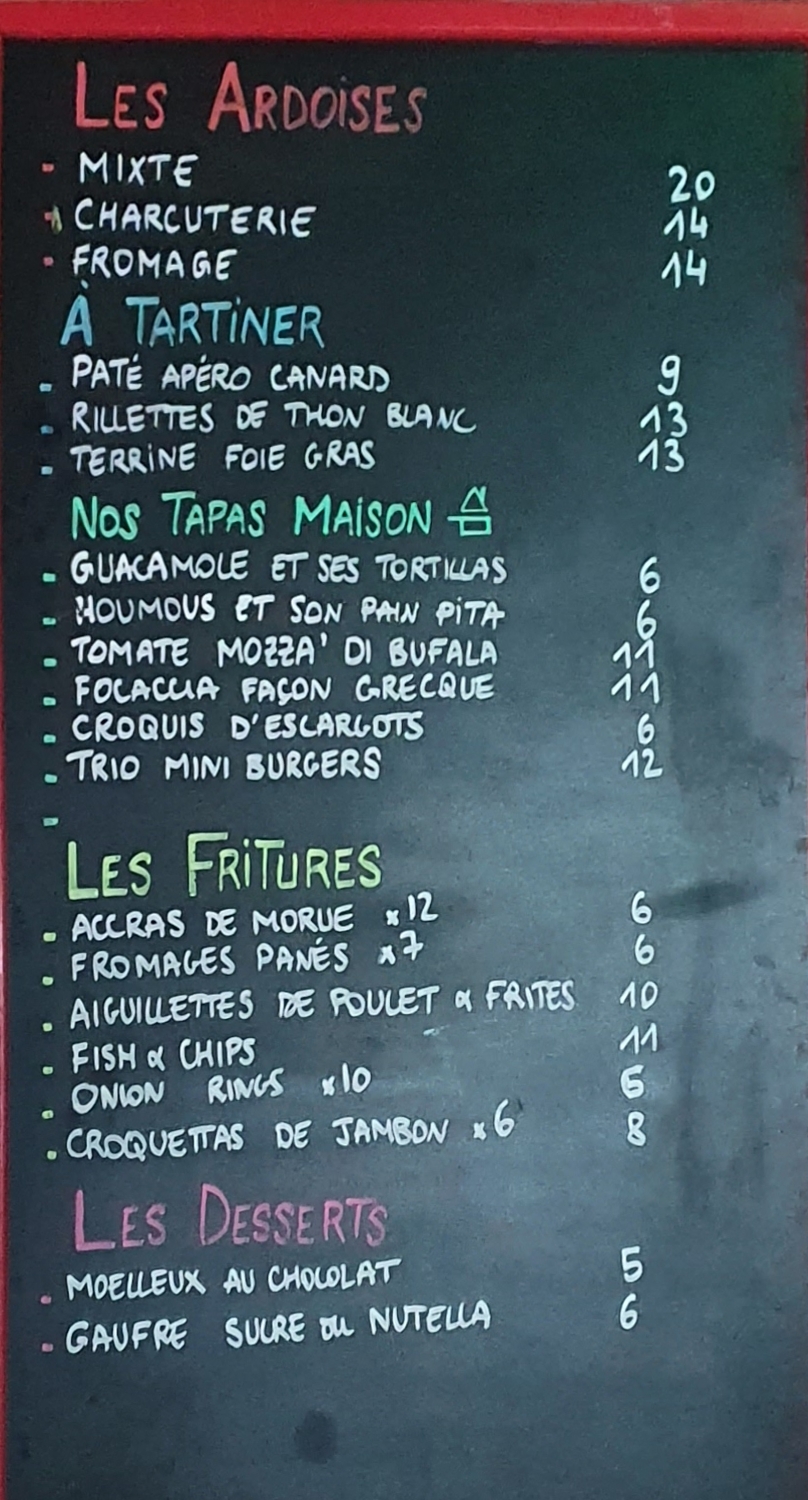 LES ARDOISES
- MIXTE 20
- CHARCUTERIE 14
- FROMAGE 14
À TARTINER
- PATÉ APÉRO CANARD 9
- RILLETTES DE THON BLANC 13
- TERRINE FOIE GRAS 13
NOS TAPAS MAISON
- GUACAMOLE ET SES TORTILLAS 6
- HOUMOUS ET SON PAIN PITA 6
- TOMATE MOZZA' DI BUFALA 11
- FOCACCIA FAÇON GRECQUE 11
- CROQUIS D'ESCARGOTS 6
- TRIO MINI BURGERS 12
-
LES FRITURES
- ACCRAS DE MORUE x12 6
- FROMAGES PANÉS x7 6
- AIGUILLETTES DE POULET & FRITES 10
- FISH & CHIPS 11
- ONION RINGS x10 6
- CROQUETTAS DE JAMBON x6 8
LES DESSERTS
- MOELLEUX AU CHOCOLAT 5
- GAUFRE SUCRE OU NUTELLA 6